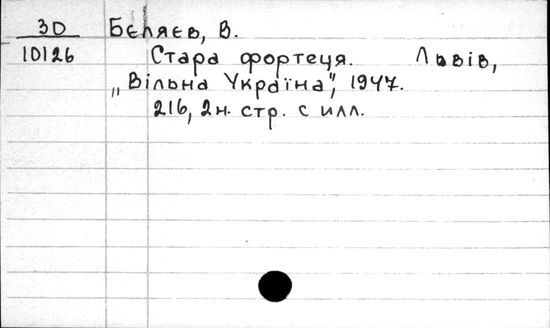 3D
10126
Бєляєв, В.
Стара фортеця. Львів,
„Вільна Україна", 1947.
216, 2н. стр. с илл.